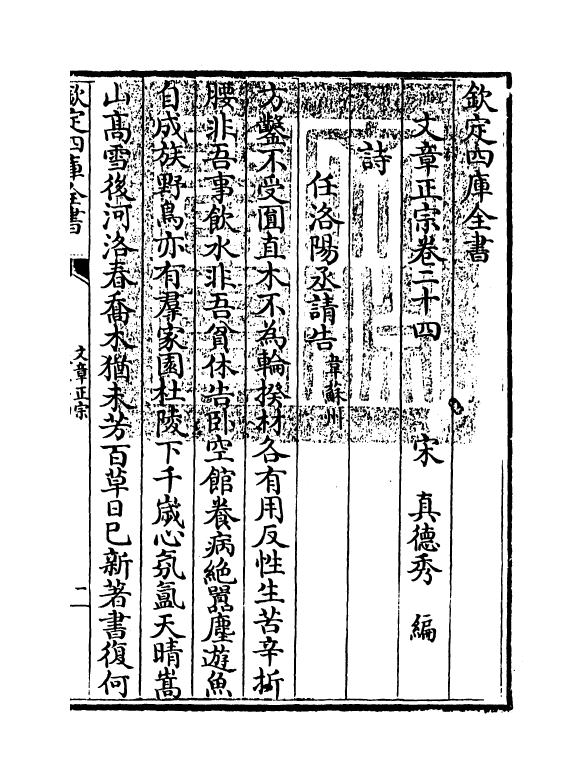 欽定四庫全書
文章正宗卷二十四
宋 真德秀 編
詩
任洛陽丞請告 韋蘇州
方鑿不受圓直木不為輪揆材各有用反性生苦辛折
腰非吾事飲水非吾貧休告卧空館養病絶囂塵遊魚
自成族野鳥亦有羣家園杜陵下千歳心氛氲天晴嵩
山髙雪後河洛春喬木猶未芳百草日已新著書復何
欽定四庫全書
文章正宗
二